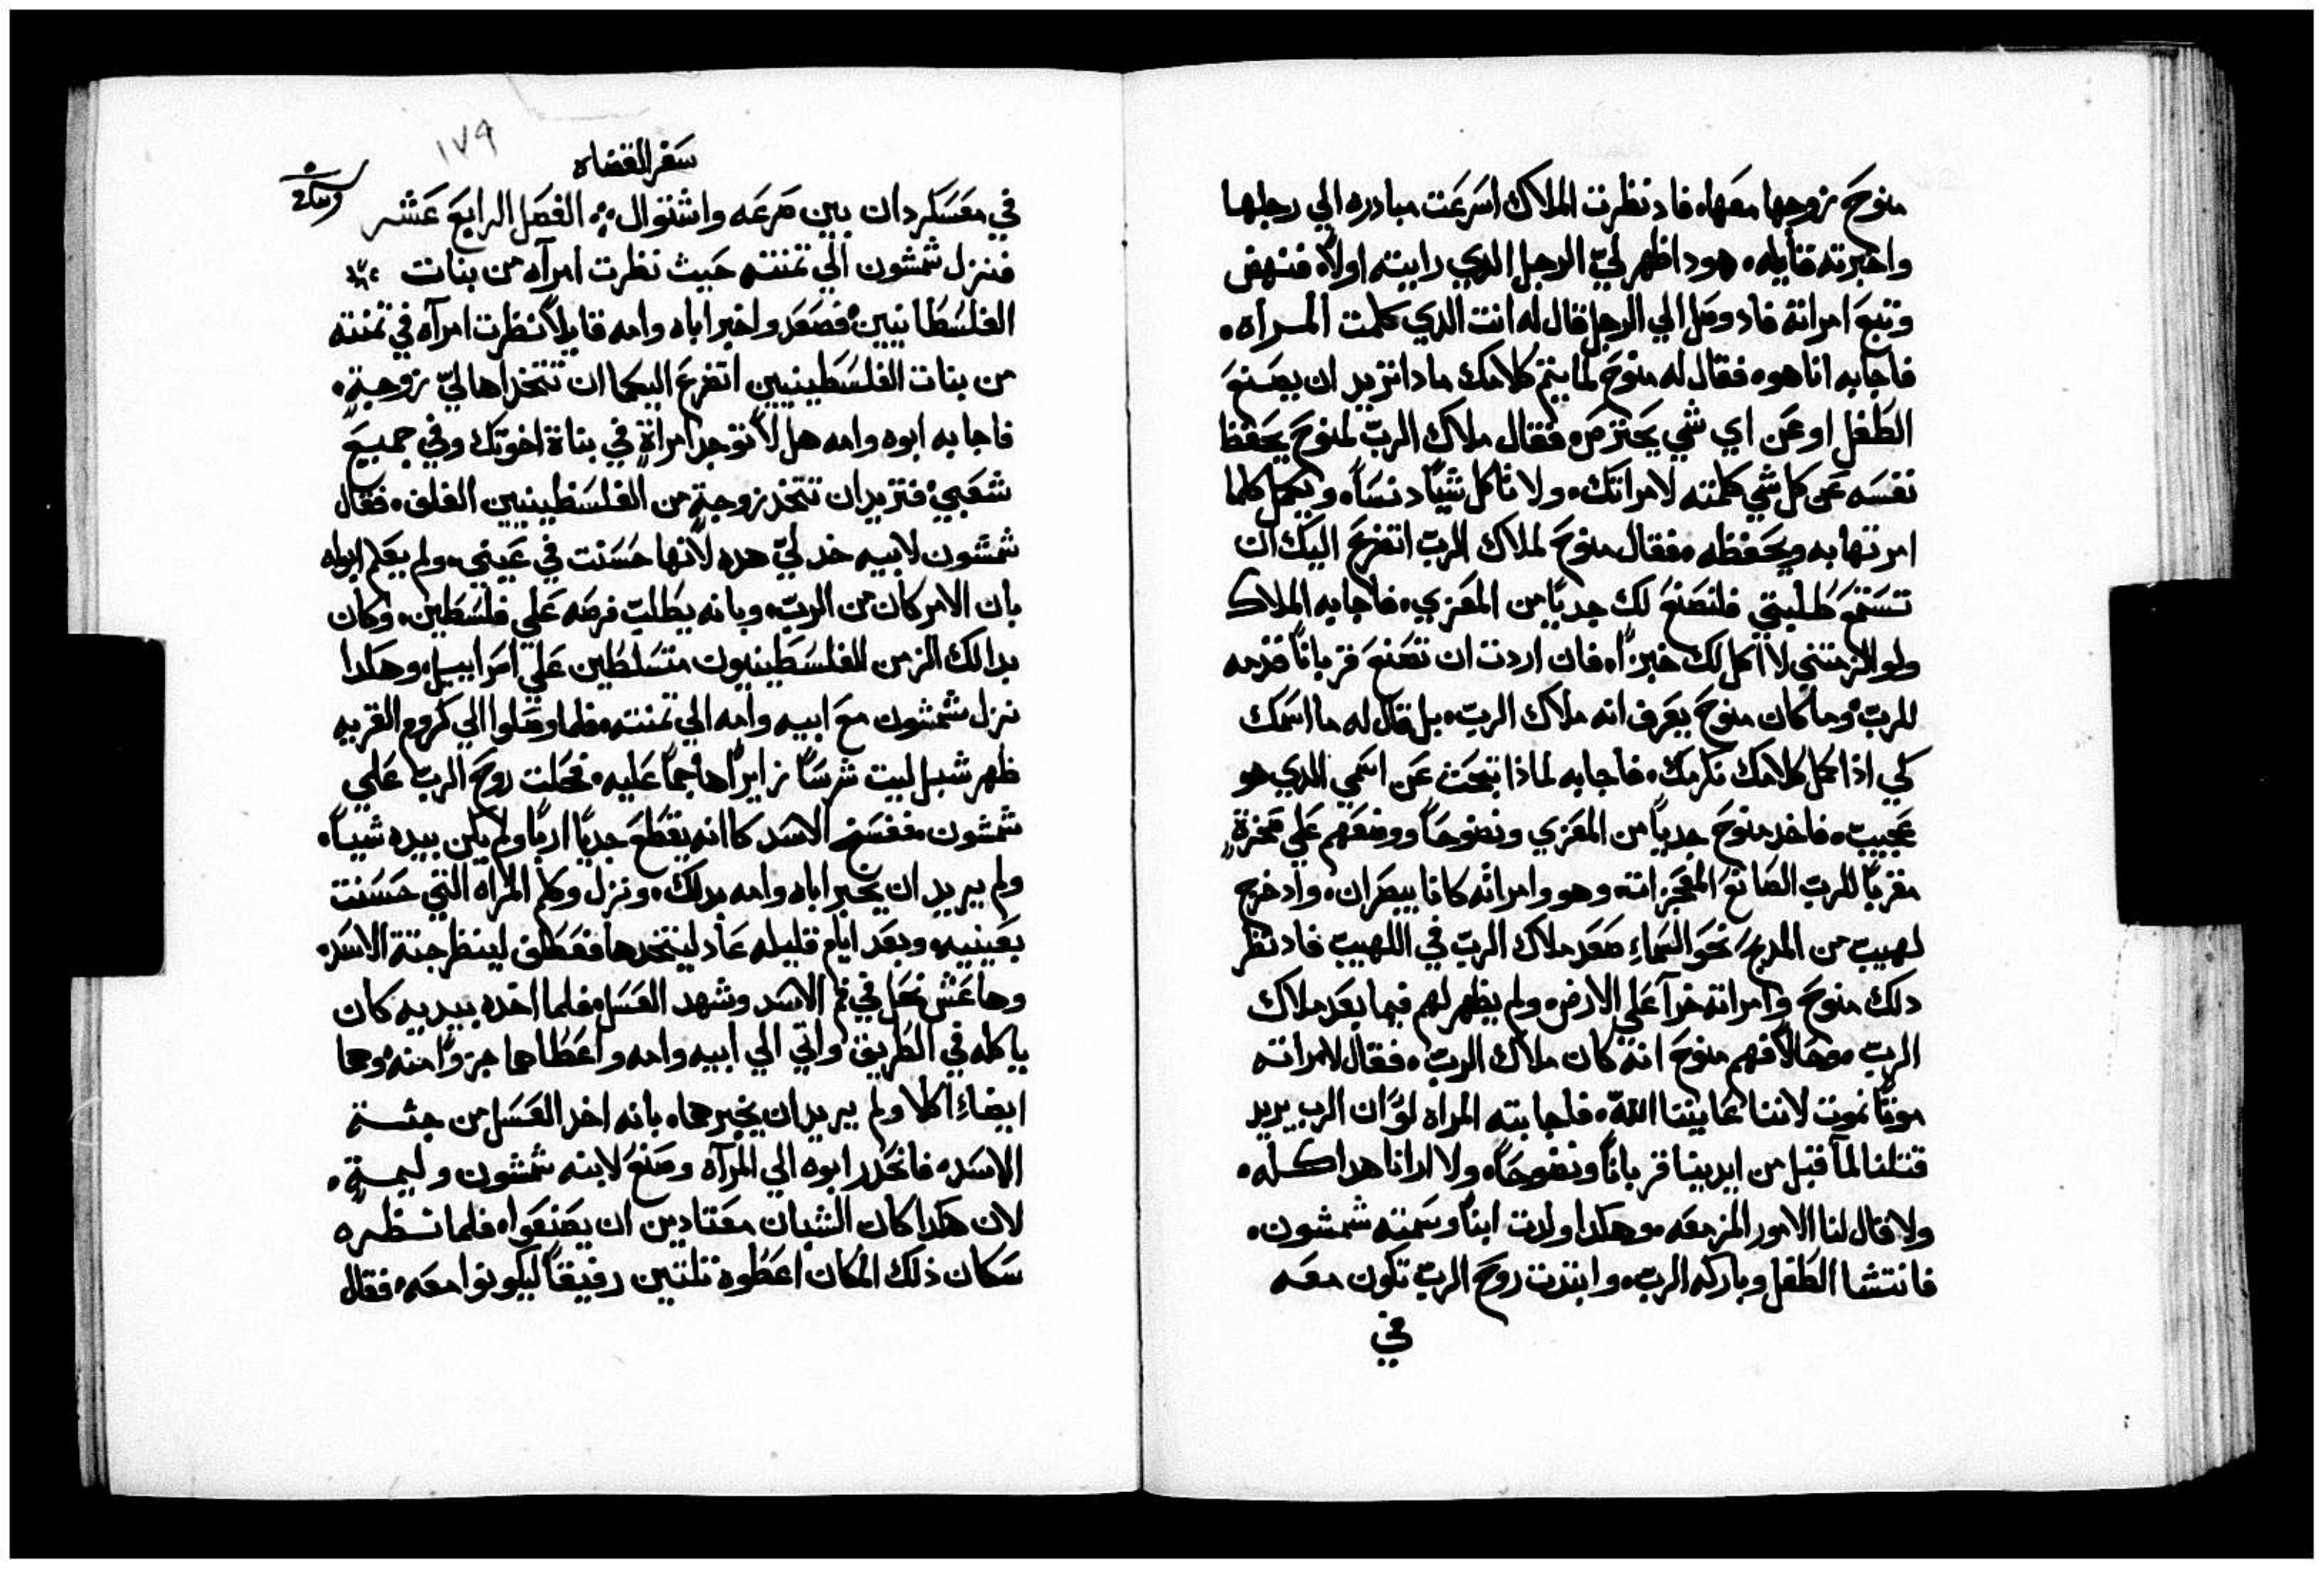 منوح زوجها معها، فاد نظرت الملاك اسرعت مبادره الي رجلها
واخبرته قايله، هودا ظهر ليّ الرجل الدي رايته اولاً، فنهض
وتبع امراته فاد وصل الي الرجل قال له انت الدي كلمت المراه،
فاجابه انا هو، فقال له منوح لما يتم كلامك مادا تريد ان يصنع
الطفل او عن اي شي يحترص، فقال ملاك الربّ لمنوح يحفظ
نفسه عن كل شي كلمته لامراتك، ولا ياكل شيّاً دنساً، ويكمل كلما
امرتها به ويحفظه، فقال منوح لملاك الربّ اتضرع اليك ان
تستمع طلبتي فلنصنع لك جديّاً من المعزي، فاجابه الملاك
ولو الزمتني لا اكل لك خبزاً، فان اردت ان تصنع قرباناً قدمه
للربّ، وما كان منوح يعرف انه ملاك الربّ، بل قال له ما اسمك
لكي اذا كمل كلامك نكرمك، فاجابه لماذا تبحث عن اسمي الدي هو
عجيب، فاخد منوح جديّاً من المعزي ونضوحاً ووضعهم علي صخرةٍ
مقرباً للربّ الصانع المعجزات، وهو وامراته كانا يبصران، واد خرج
لهيب من المدبح نحو السماء صعد ملاك الربّ في اللهيب فاد نظر
دلك منوح وامراته خراً علي الارض، ولم يظهر لهم فيما بعد ملاك
الربّ، وحالاً فهم منوح انه كان ملاك الربّ، فقال لامراته
موتاً نموت لاننا عايننا اللّه، فاجابته المراه لوّ ان الرب يريد
قتلنا لماّ قبل من ايدينا قرباناً ونضوحاً، ولا ارانا هدا كله،
ولا قال لنا الامور المزمعه، وهكدا ولدت ابناً وسمته شمشون،
فانتشا الطفل وباركه الربّ، وابتدت روح الربّ تكون معه
في
سفر القضاه
١٧٩
في معسكر دان بين صرعه واشتوال ؞ الفصل الرابع عشر
فنزل شمشون الي تمنته حيث نظرت امرآه من بنات
الفلسطانيين، فصعد واخبر اباه وامه قايلاً نظرت امرآه في تمنته
من بنات الفلسطينيين اتضرع اليكما ان تتخداها ليّ زوجةٍ،
فاجابه ابوه وامه هل لا توجد امراةٍ في بناة اخوتك وفي جميع
شعبي، فتريد ان تتخد زوجةٍ من الفلسطينيين الغلف، فقال
شمشون لابيه خد ليّ هده لانها حسنت في عيني، ولم يعلم ابواه
بان الامر كان من الربّ، وبانه يطلب فرصه علي فلسطين، وكان
بدالك الزمن الفلسطينيون متسلطين علي اسراييل، وهكدا
نزل شمشون مع ابيه وامه الي تمنته، فلما وصلوا الي كروم القريه
ظهر شبل ليت شرساً زايراً هاجماً عليه، فحلت روح الربّ علي
شمشون، ففسخ الاسد كاانه يقطع جديّاً ارباً ولم يكن بيده شيباً،
ولم يريد ان يخبر اباه وامه بدلك، ونزل وكلم المراه التي حسنت
بعينيه، وبعد ايام قليله عاد ليتخدها فعطف لينظر جتة الاسد،
وها عش نحل في فم الاسد وشهد العسل، فلما اخده بيديه كان
ياكله في الطريق، واتي الي ابيه وامه واعطاهما جزواً منه، وهما
ايضاءً اكلا ولم يريد ان يخبرهما، بانه اخد العسل من جثة
الاسد، فانحدر ابوه الي المرآه وصنع لابنه شمشون وليمةٍ،
لان هكدا كان الشبان معتادين ان يصنعوا، فلما نظره
سكان ذلك المكان اعطوه تلتين رفيقاً ليكونوا معه، فقال